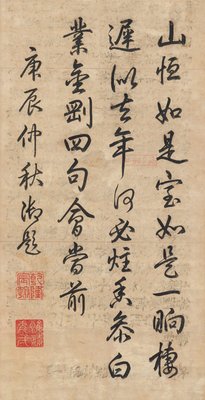 山恒如是室如是一晌棲
遲似去年何必炷香参白
業金剛四句會當前
庚辰仲秋御題